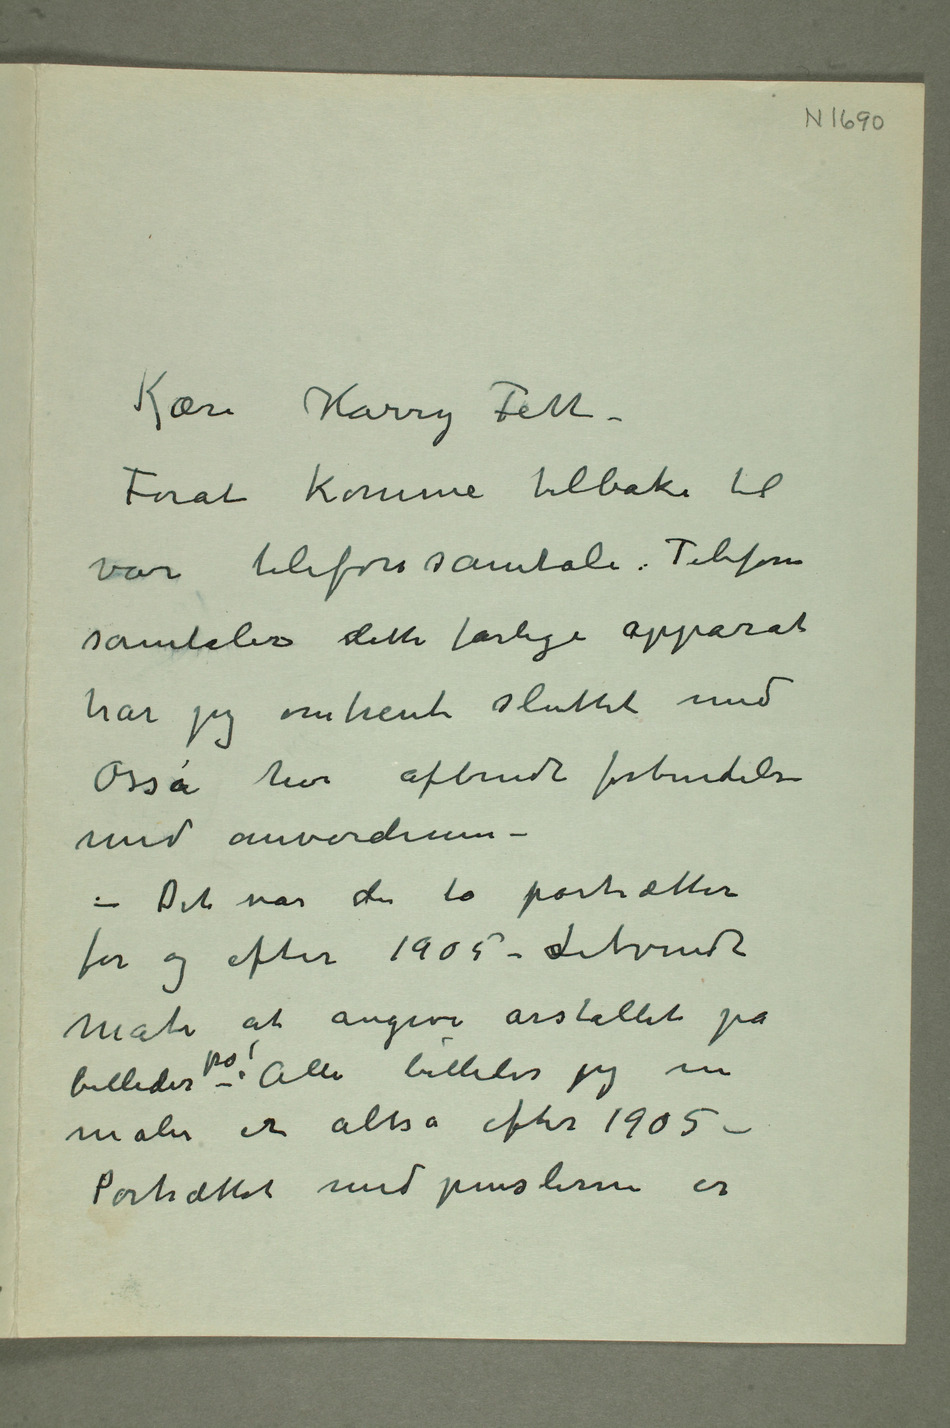 N 1690
Kære Harry Fett –
Forat komme tilbake til
vor telefonsamtale. Telefon
samtaler dette farlige apparat
har jeg omtrent sluttet med
Osså her afbrudt forbindelse
med omverdenen –
– Det var de to portrætter
før og efter 1905 – Letvindt
måte at angive årstallet på
billeder på! – Alle billeder jeg nu
maler er altså efter 1905 –
Portrættet med penslerne er